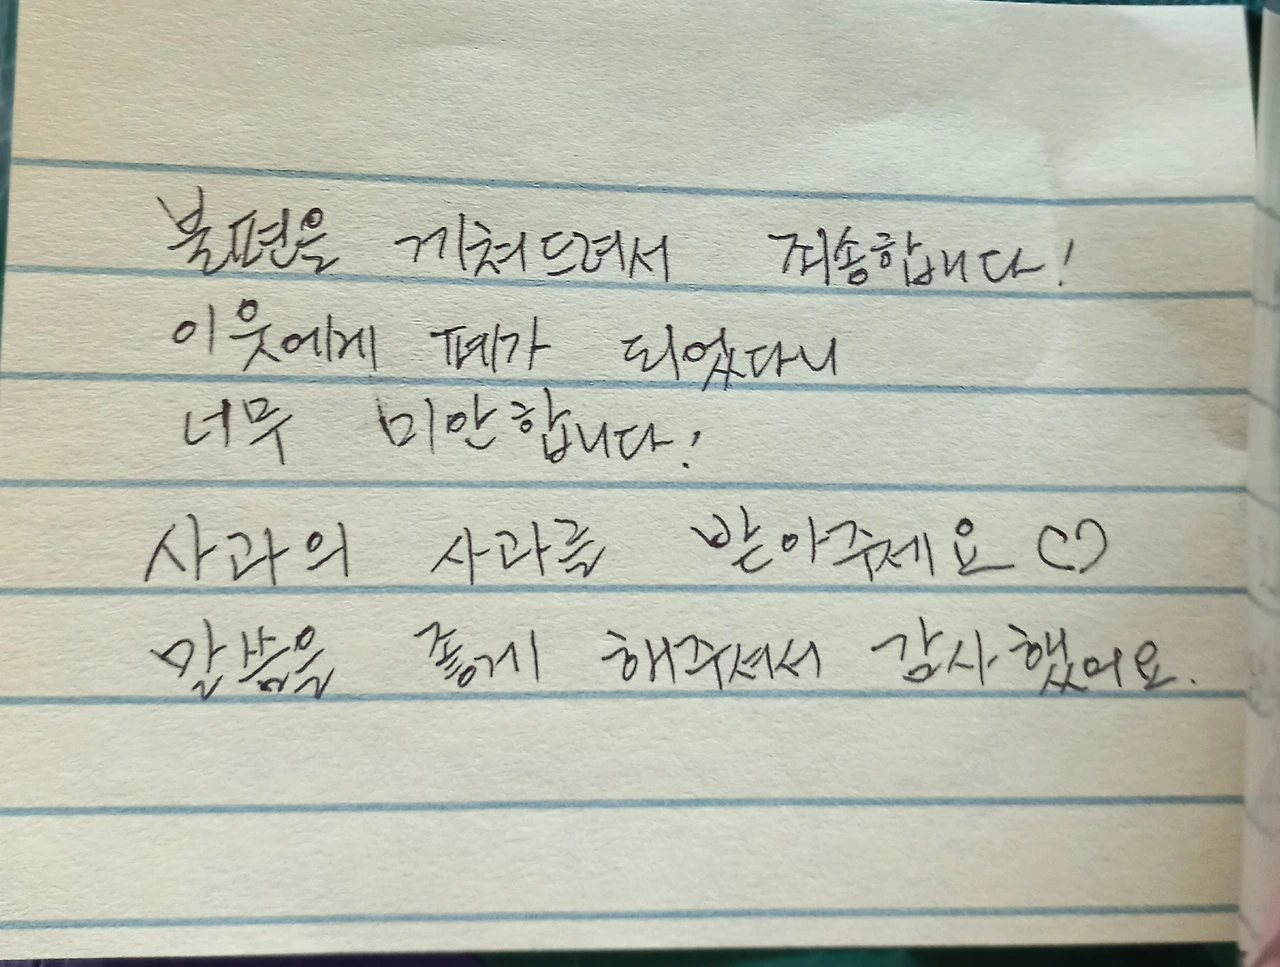 불편을 게쳐드려서 죄송합니다!
이웃에게 폐가 되었다니
너무 미안합니다!
사과의 사과를 받아주세요♡
말씀을 좋게 해주셔서 감사했어요.